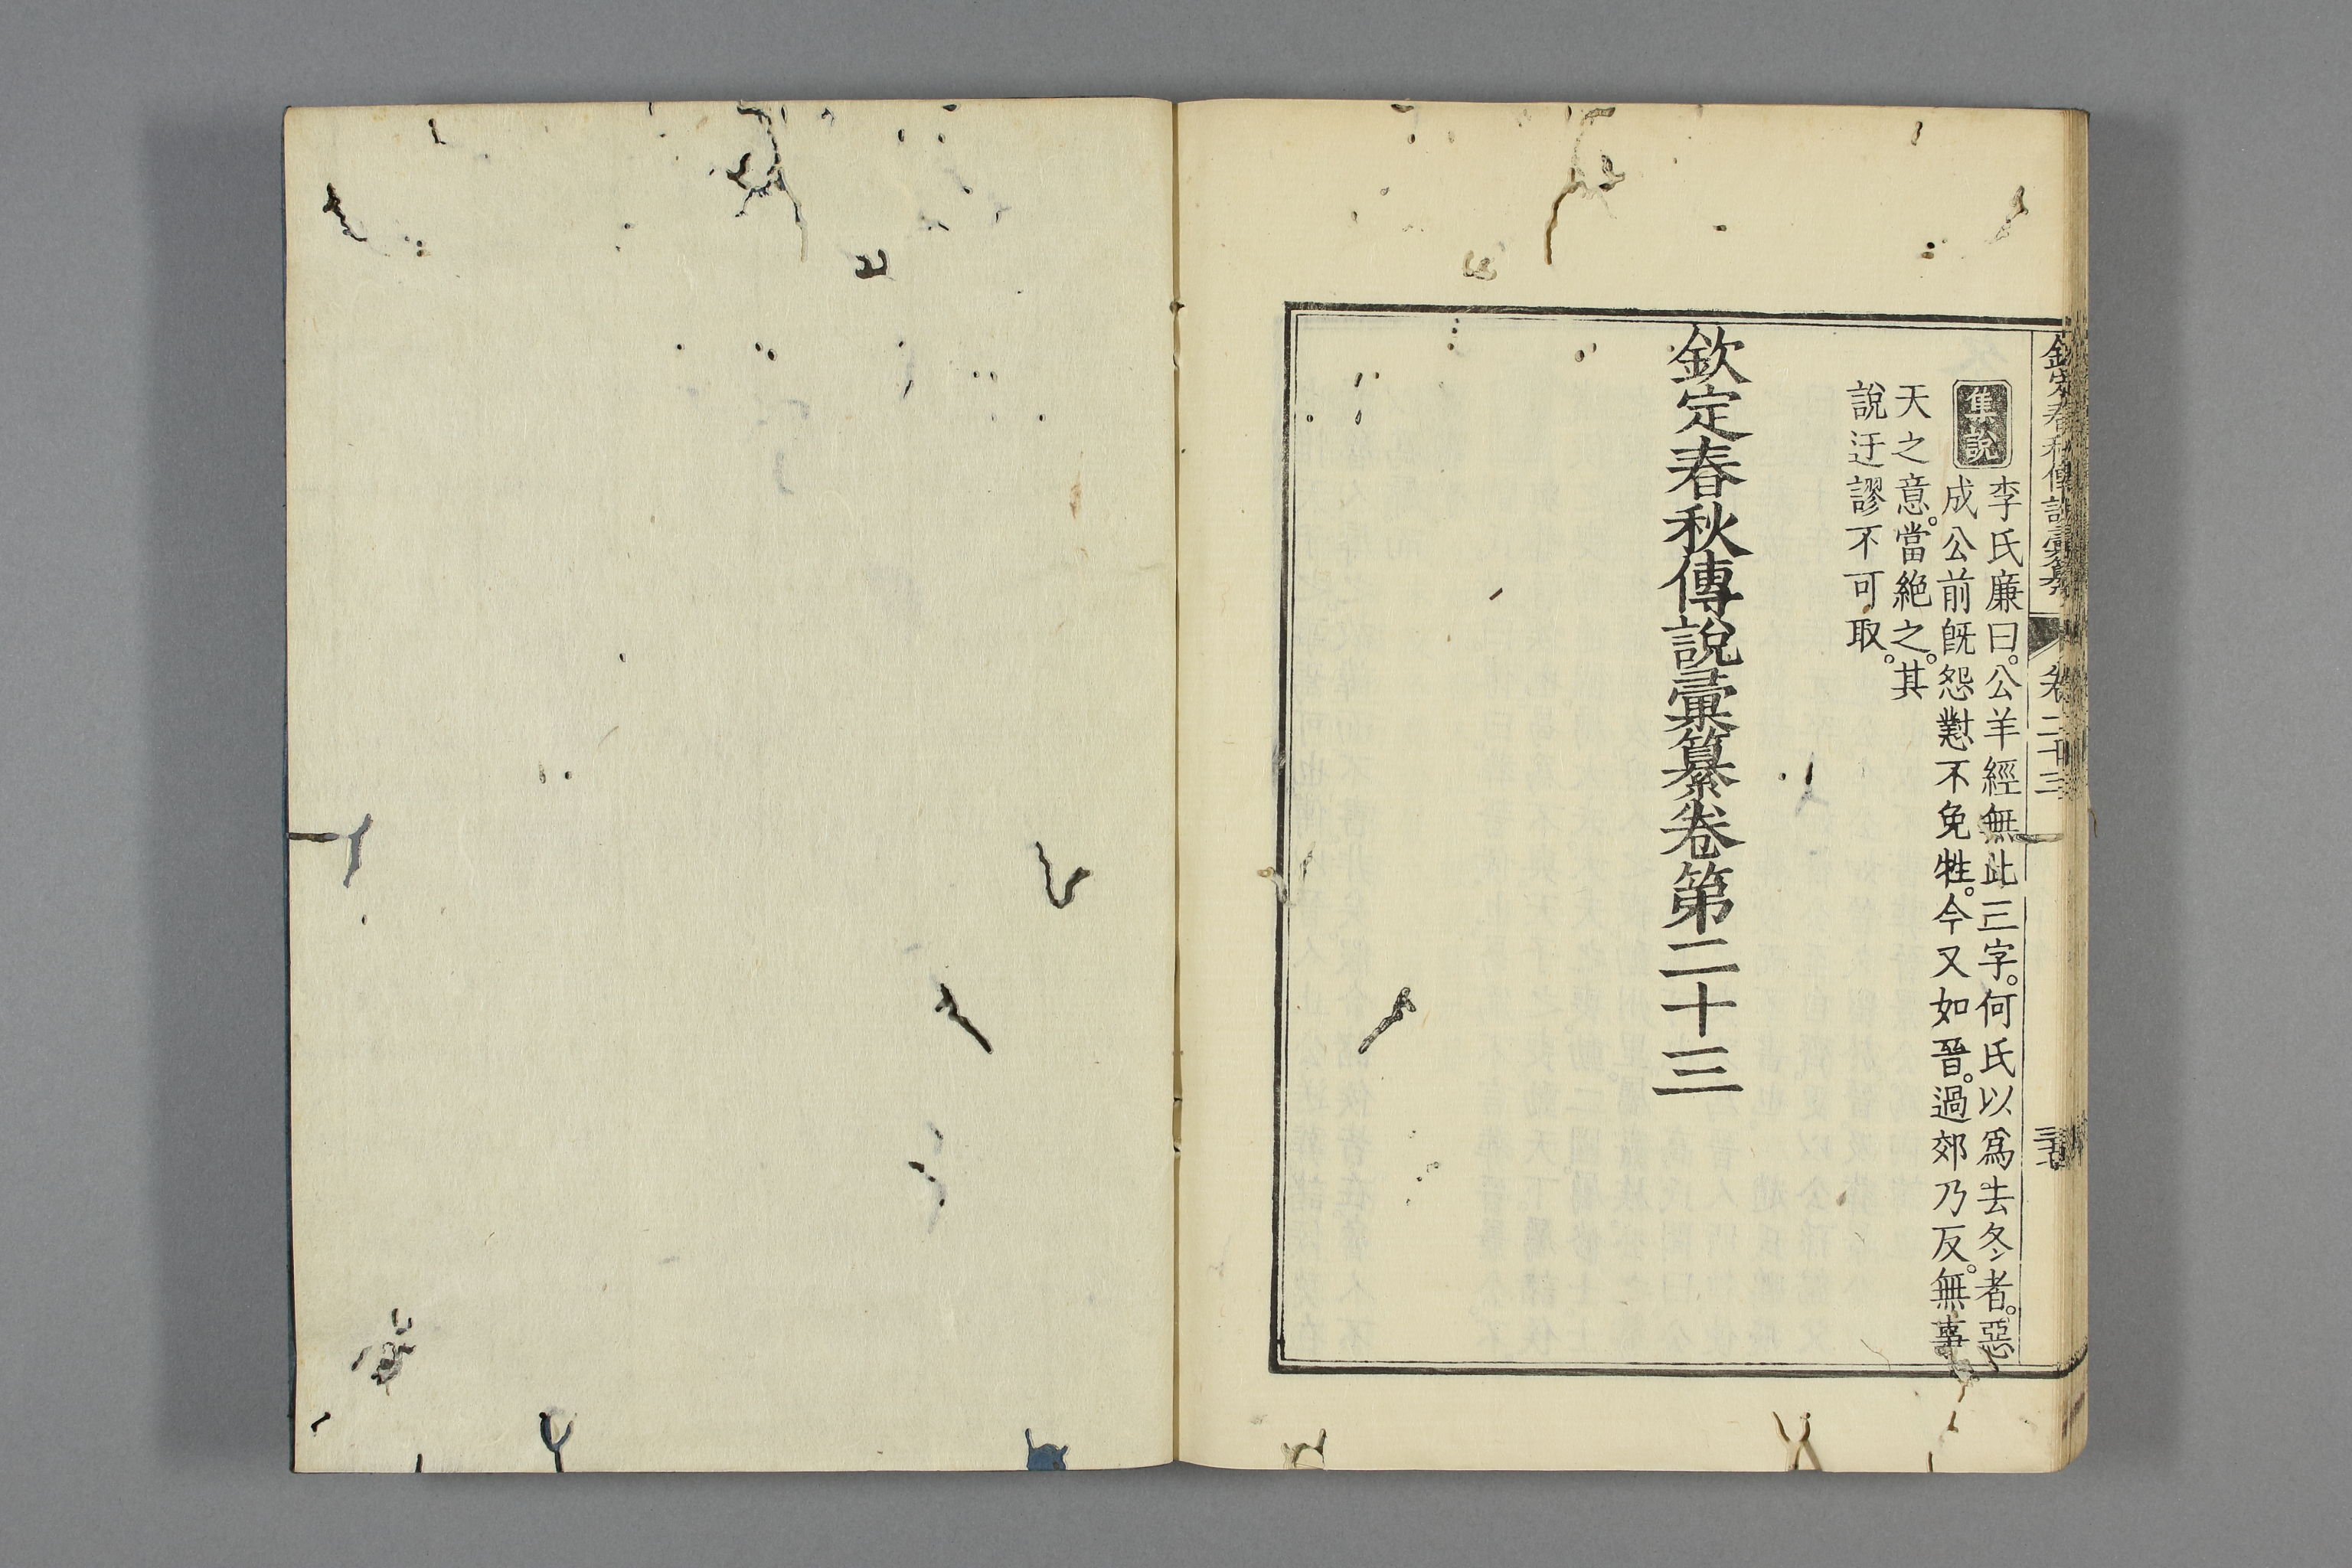 欽定春秋傳說彙纂 卷二十三
集說
李氏廉曰。公羊經無此三字。何氏以爲去冬者。惡
成公前旣怨懟不免牲。今又如晉。過郊乃反。無事
天之意。當絕之。其
說迂謬不可取。
欽定春秋傳說彙纂卷第二十三